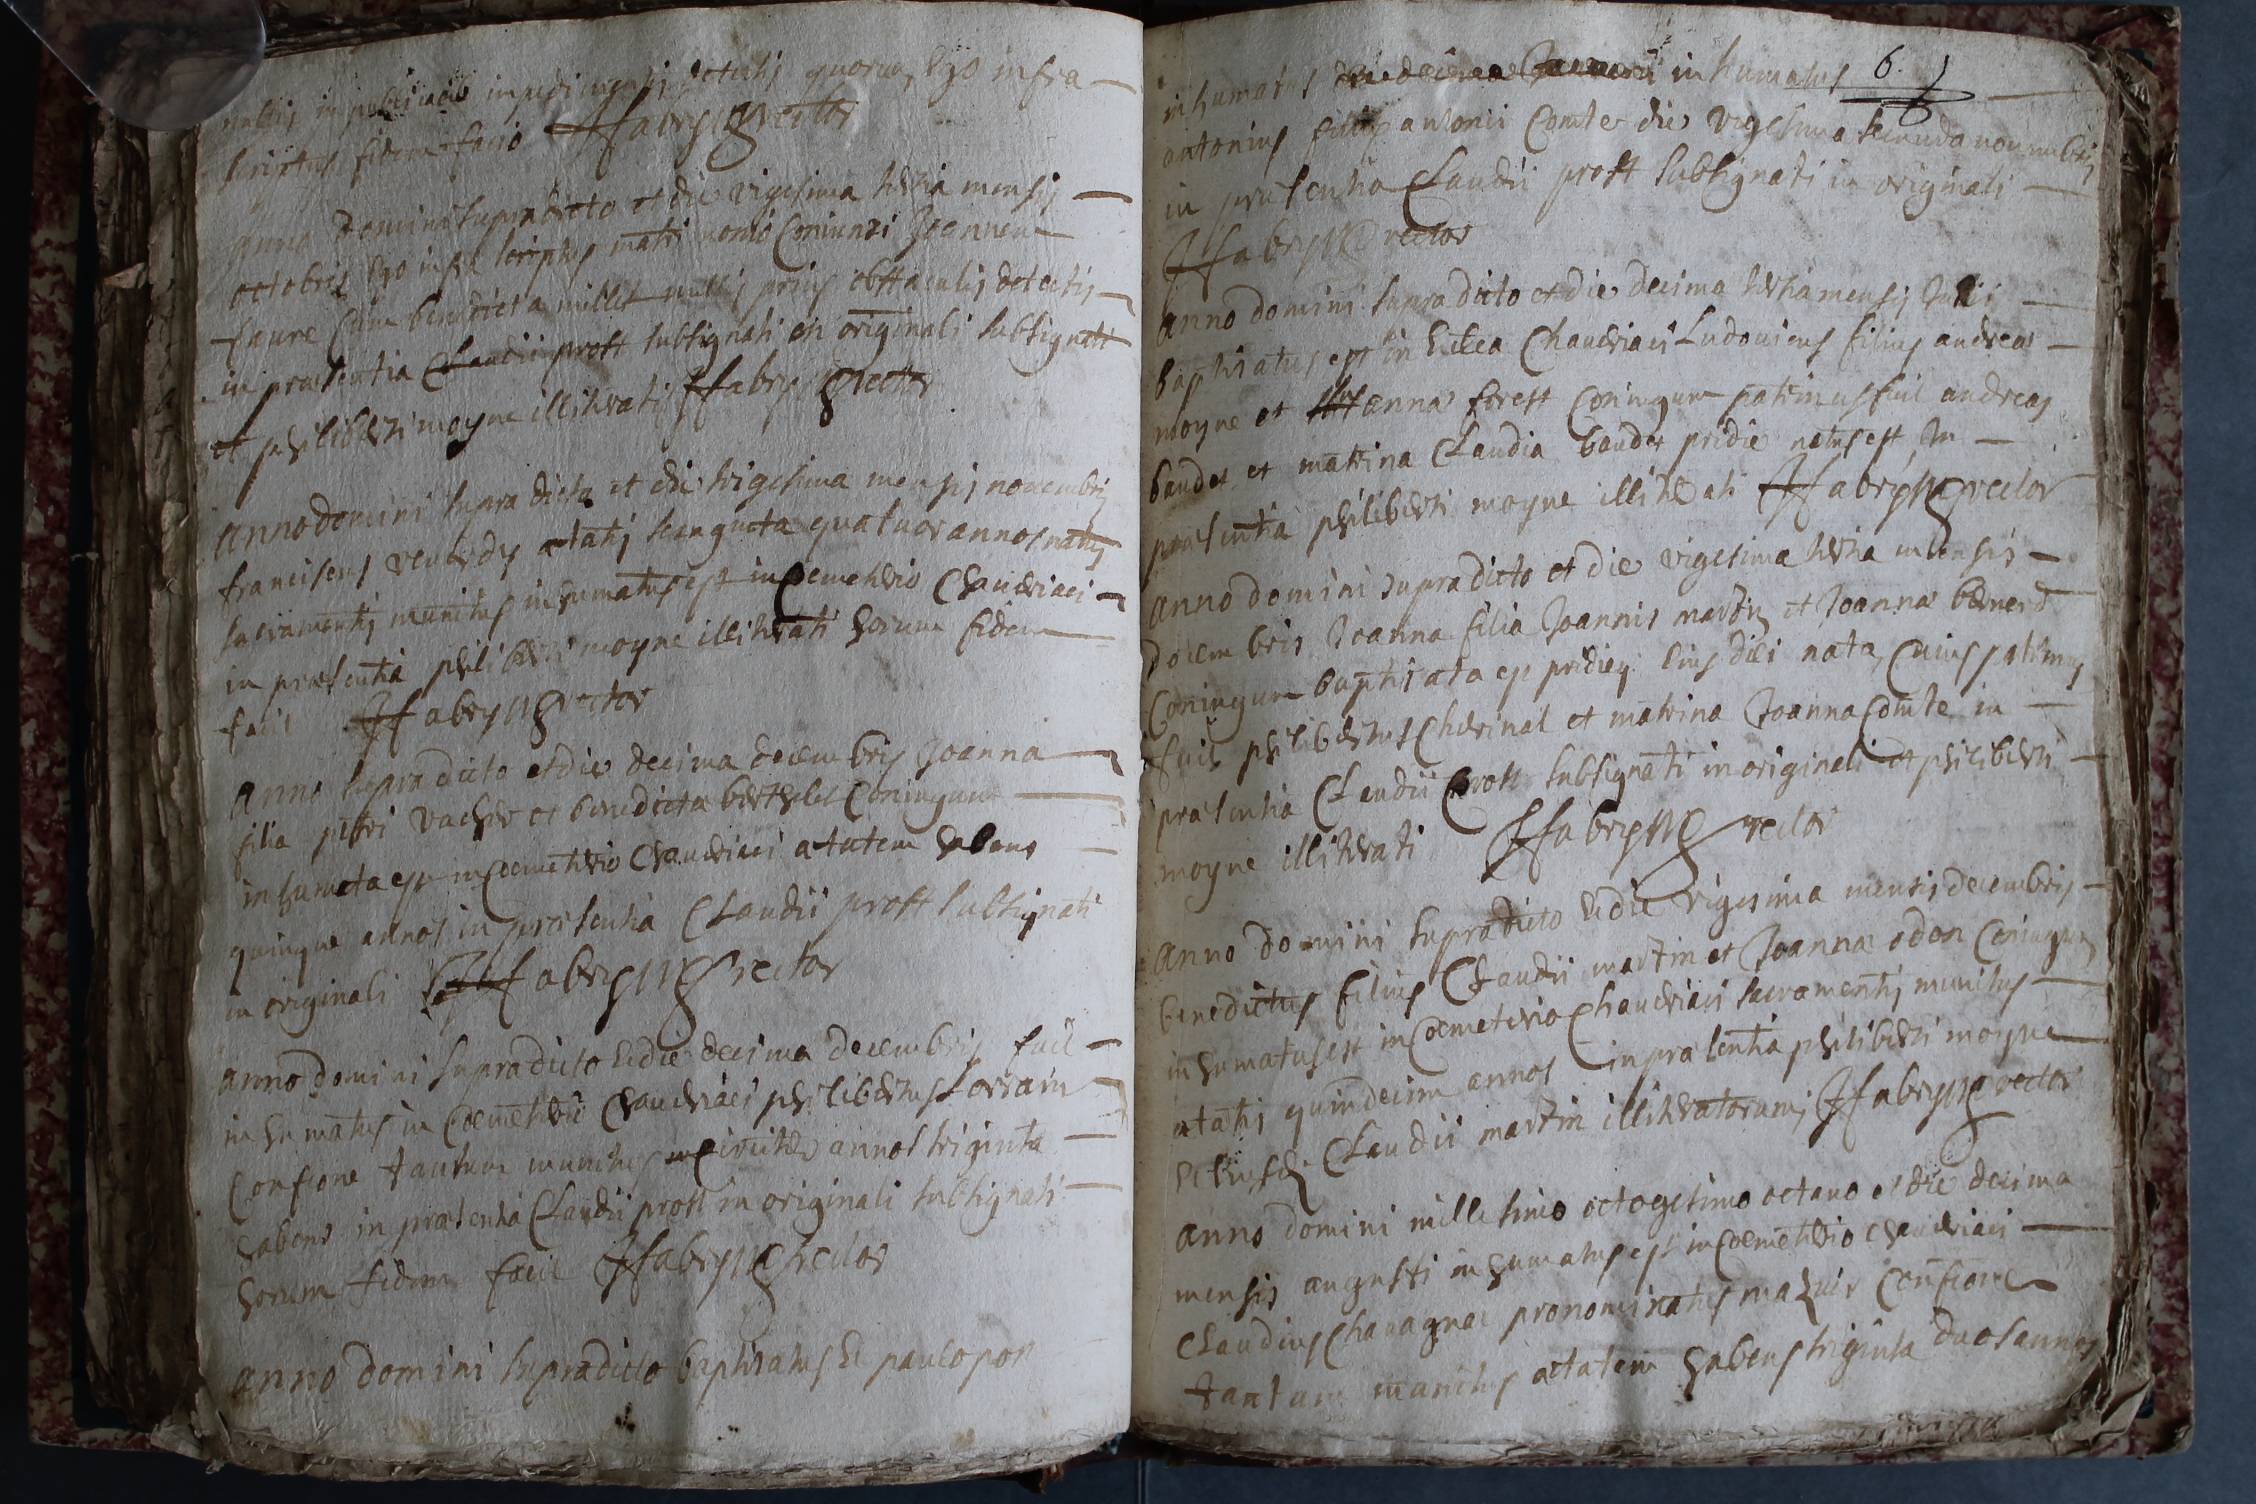 nullis in publicatis impedimentis detectis quorum Ego infra
scriptus fidem facio JJfabry rector
anno domini supradicto et die vigesima tertia mensis
octobris Ego infra scriptus matrimonio coniunxi Joannem
faure cum benedicta millet nullis prius obstaculis detectis
in praesentia Claudii prost subsignati in originali subsignati
et philiberti moyne illiterati JJfabry rector
anno domini supra dicto et die trigesima mensis novembris
franciscus aetatis sexaginta quatuor annos natus
sacramentis munitus inhumatus est in Coemeterio Chaudriaci
in praesentia philiberti moyne illiterati horum fidem
facit JJfabry rector
anno supradicto et die decima decembris Joanna
filia petri vacher et benedicta berthelet Coniugum
inhumata est in Coemeterio Chaudriaci aetatem habens
quinque annos in praesentia Claudii prost subsignati
in originali JJfabry rector
anno domini supradicto Et die decima decembris fuit
inhumatus in Coemeterio Chaudriaci philibertus Lorrain
Confione tantum munitus circiter annos triginta
habens in praesentia Claudii prost in originali subsignati
horum fidem facit JJfabry rector
anno domini supradicto baptisatus Et paulo post
inhumatus inhumatus 6.
antonius filius antonii Comte die vigesima secunda novembris
in praesentia Claudii prost subsignati in originali
JJfabry rector
anno domini supradicto et die decima tertia mensis Julii
baptisatus est in Ecclea Chaudriaci Ludovicus filius andreae
moyne et anna forest Coniugum patrinus fuit andreas
baudet et matrina Claudia baudet pridie natus est In
praesentia philiberti moyne illiterati JJfabry rector
anno domini supradicto et die vigesima tertia mensis
decembris Joanna filia Joannis martin et Joanna bernard
Coniugum baptisata est pridieq. Eius diei nata, Cuius patrinus
fuit philibertus Cherinal et matrina Joanna Comte in
praesentia Claudii prost subsignati in originali et philiberti
moyne illiterati JJfabry rector
anno domini supradicto Et die vigesima mensis decembris
benedictus filius Claudii martin et Joanna odon Coniugum
inhumatus est in Coemeterio Chaudriaci sacramentis munitus
aetatis quindecim annos in praesentia philiberti moyne
Claudii martin illiteratorum JJfabry rector
anno domini millesimo octogesimo octavo et die decima
mensis augusti inhumatus est in Coemeterio Chaudriaci
Claudius Chavagnac pronominatus mazuir Confione
tantum munitus aetatem habens triginta duos annos